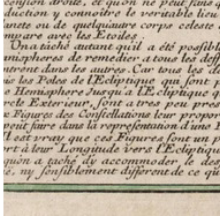 cension droite, et qu'on ne peut sans
duction y connoître le veritable lieu
anete ou de quelqu'autre corps celeste
mpare avec les Etoiles.
On a tâché autant qu'il a été possible
misphéres de remedier a tous les deff
ntrent dans les autres. Car tous les
is les Poles de l'Ecliptique qui sont
e Hemisphere Jusqu'à l'Ecliptique q
rcle Exterieur, sont a tres peu pres
x Figures des Constellations leur propor
peut faire dans la représentation d'une
Il est vray que ces Figures sont un p
ort à leur Longitude vers l'Ecliptique
qu'on a tâché d'y accommoder le des
e, ny sensiblement different de ce qu